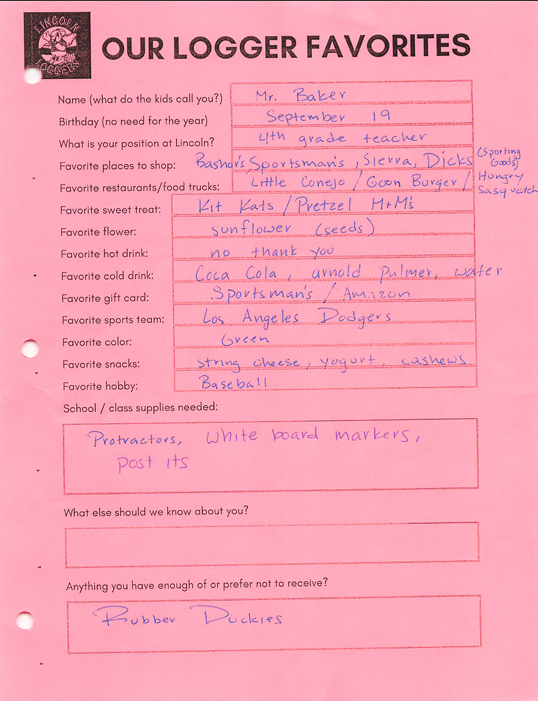 LINCOLN
LOGGERS
OUR LOGGER FAVORITES
Name (what do the kids call you?) Mr. Baker
Birthday (no need for the year) September 19
What is your position at Lincoln? 4th grade teacher
Favorite places to shop: Bashor's, Sportsman's, Sierra, Dicks (Sporting Goods)
Favorite restaurants/food trucks: Little Conejo / Goon Burger / Hungry Sasquatch
Favorite sweet treat: Kit Kats / Pretzel M+M's
Favorite flower: sunflower (seeds)
Favorite hot drink: no thank you
Favorite cold drink: Coca Cola, arnold palmer, water
Favorite gift card: Sportsman's / Amazon
Favorite sports team: Los Angeles Dodgers
Favorite color: Green
Favorite snacks: string cheese, yogurt, cashews
Favorite hobby: Baseball
School / class supplies needed:
Protractors, white board markers,
post its
What else should we know about you?
Anything you have enough of or prefer not to receive?
Rubber Duckies